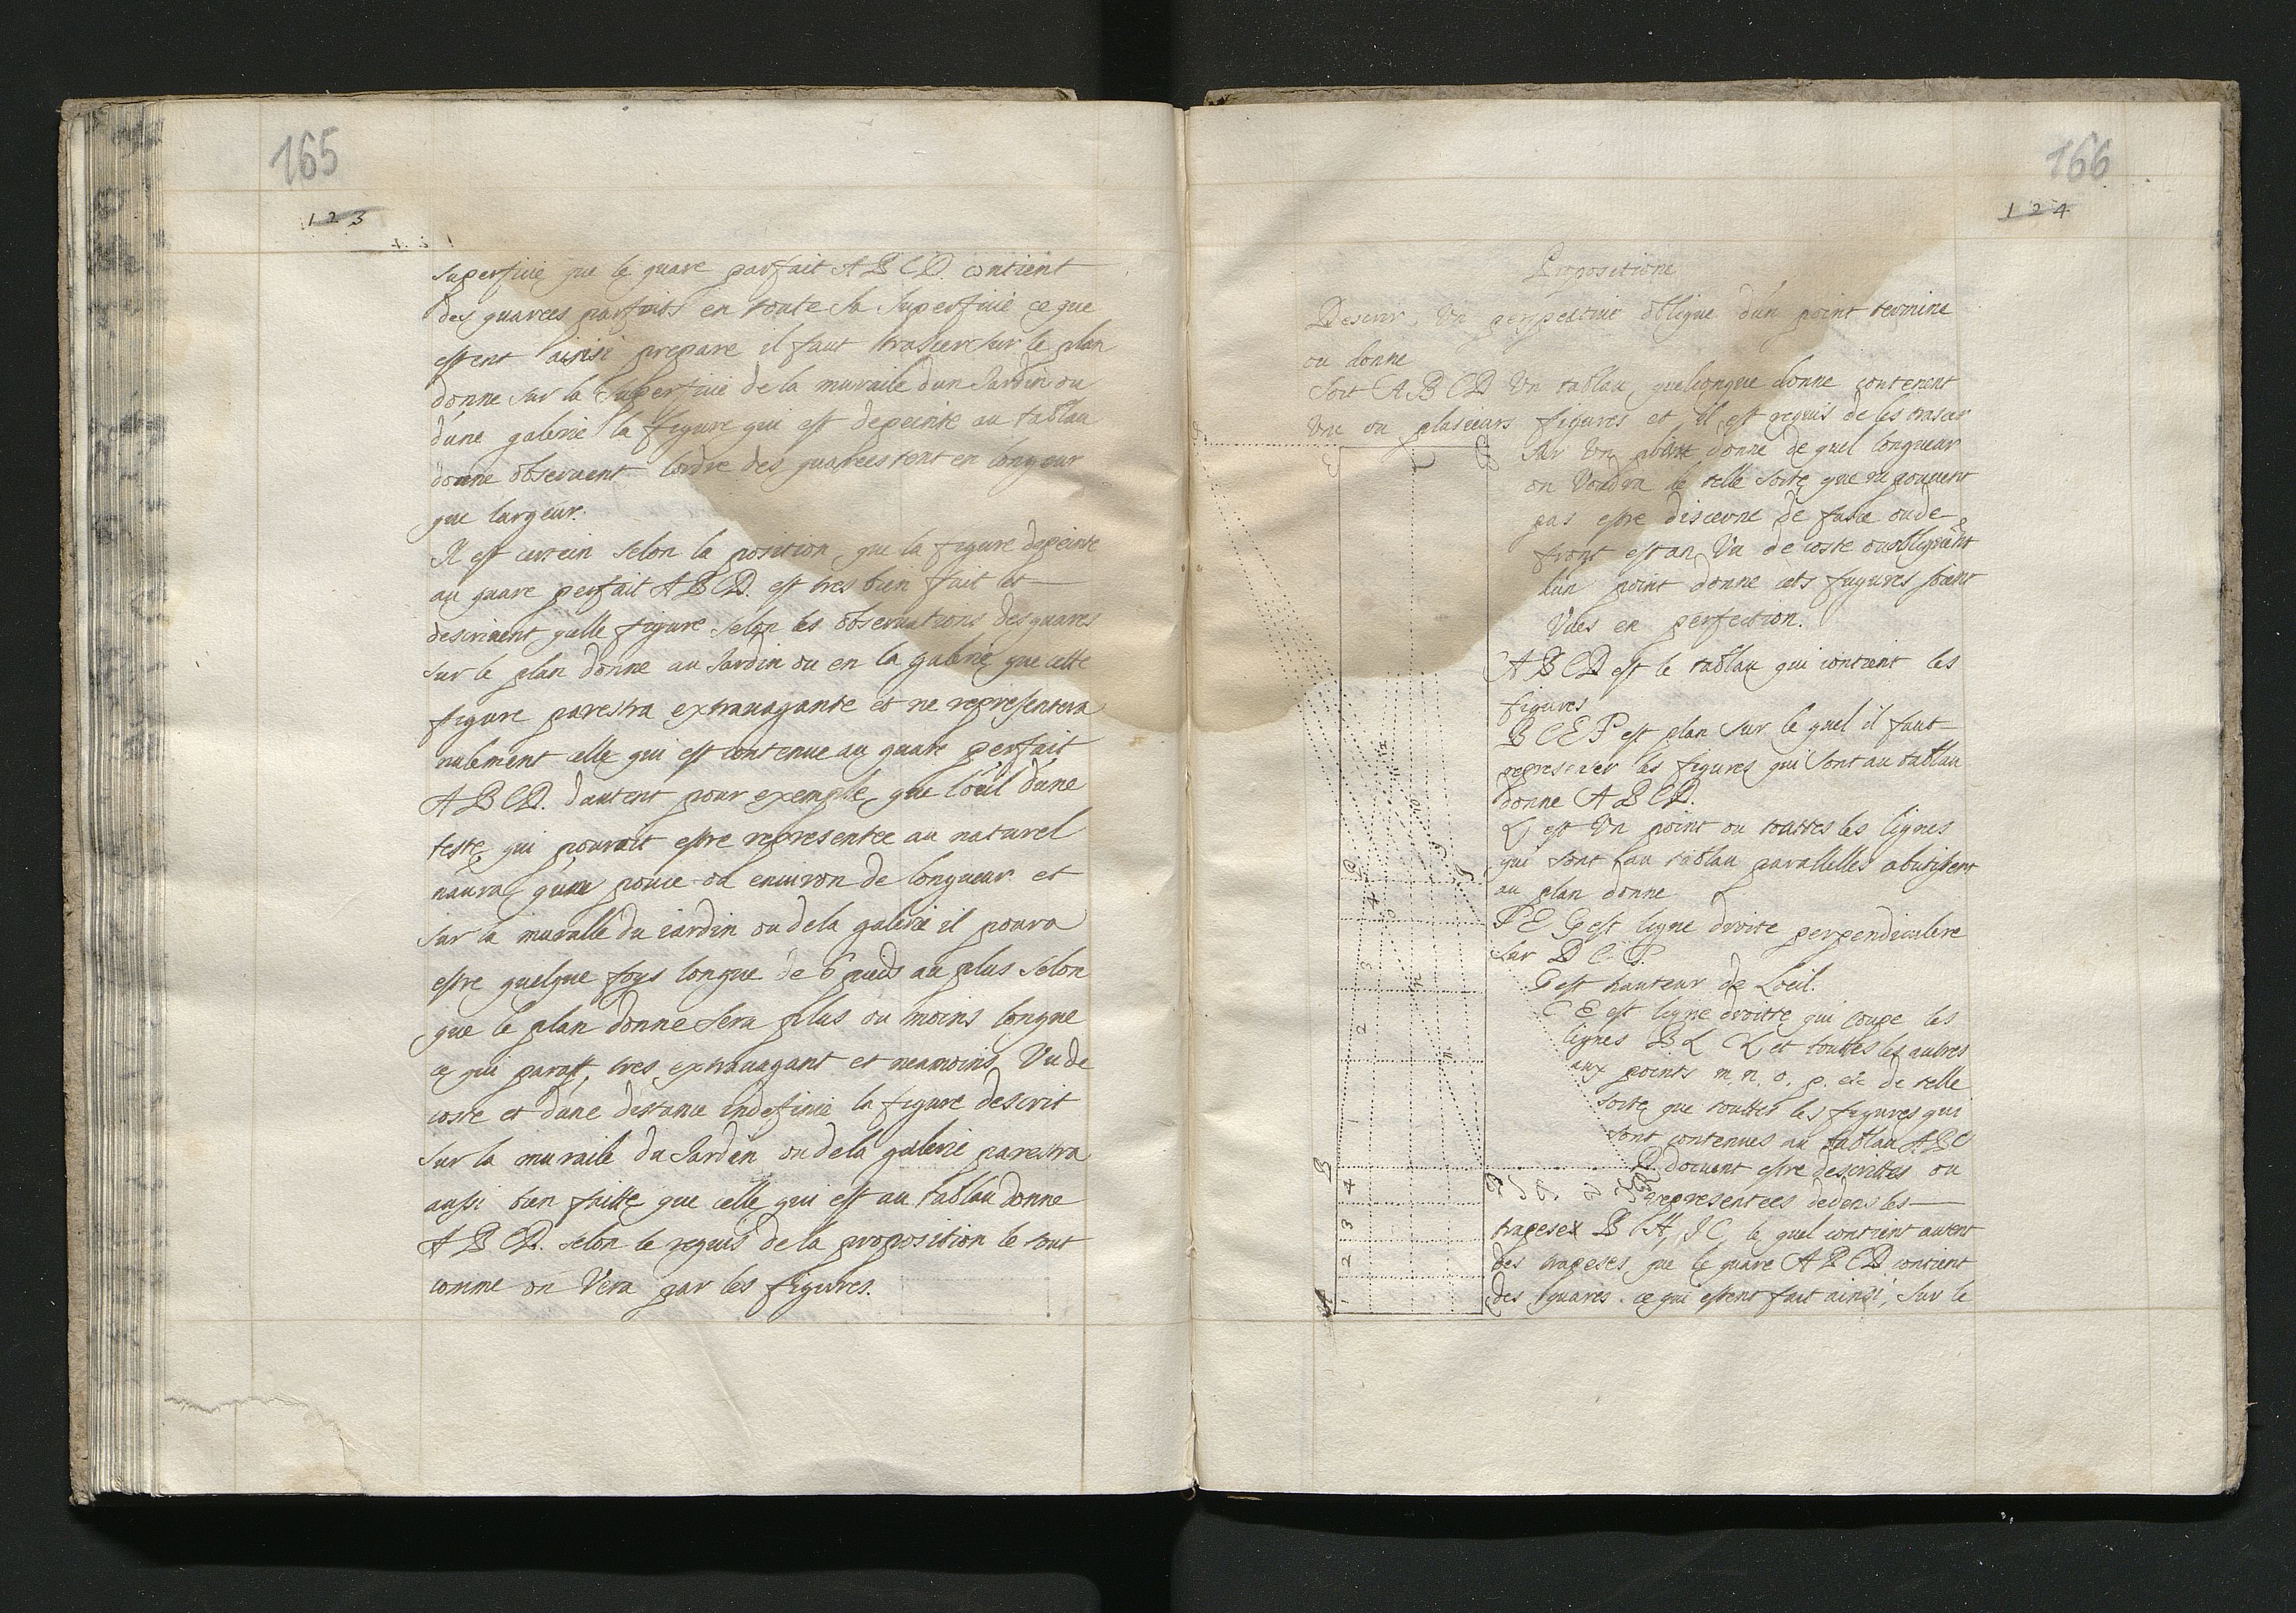 165
123
superficie que le quare parfait ABCD contient
des quarees parfaits en toute sa superficie ce que
estent ainsi prepare il faut trascer sur le plan
donne sur la superficie de la muraile dun Jardin ou
dune galerie la figure qui est depeinte au tablau
donne observent lordre des quarees tent en longeur
que largeur.
Il est certein selon la position, que la figure depeinte
au quare perfait ABCD. est tres bien fait et
descrivent qelle figure selon les observations des quares
sur le plan donne au Jardin ou en la galerie que cette
figure parestra extravagante et ne representera
nulement celle qui est contenue au quare perfait
ABCD. dautent pour exemple, que l'oeil dune
teste qui pouroit estre representee au naturel
naura qune pouce ou environ de longueur et
sur la muralle du iardin ou dela galerie il poura
estre quelque foys longue de 6 pieds au plus selon
que le plan donne sera plus ou moins longue
ce qui parast tres extravagant et neamoins, Vu de
coste et dune distance indefinie la figure descrit
sur la muraile du Jardin ou dela galerie parestra
aussi bien faitte que celle qui est au tablau donne
ABCD. selon le requis de la proposition le tout
comme on Vera par les figures.
166
124
Propositione
Descrir Un perspective obligue dun point termine
ou donne
Soit ABCD Un tablau quelconque donne contenent
Une ou plusieurs figures et il est requis de les trascer
sur Un donne de quel longueur
on Voudra de telle sorte que ne pouvent
pas estre discerne de face ou de
front estan Vu de coste
dun point donne figures soient
Vues en perfection.
ABCD est le tablau qui contient les
figures
BCEF est plan sur le quel il faut
represeter les figures qui sont au tablau
donne ABCD.
L est Un point ou touttes les lignes
qui sont au tablau parallelles abutissent
au plan donne
FEG est ligne droite perpendiculere
sur BCF.
G est hauteur de Loeil.
CE est ligne droitte qui coupe les
lignes BL et touttes les autres
aux points m, n, o, p. etc de telle
sorte que touttes les figures qui
sont contenues au tablau ABC
D doivent estre descrittes ou
representees dedens les
trapeses BH, IC, le quel contient autent
des trapeses que le quare ABCD contient
des quares. ce qui estent fait ainsi, sur le